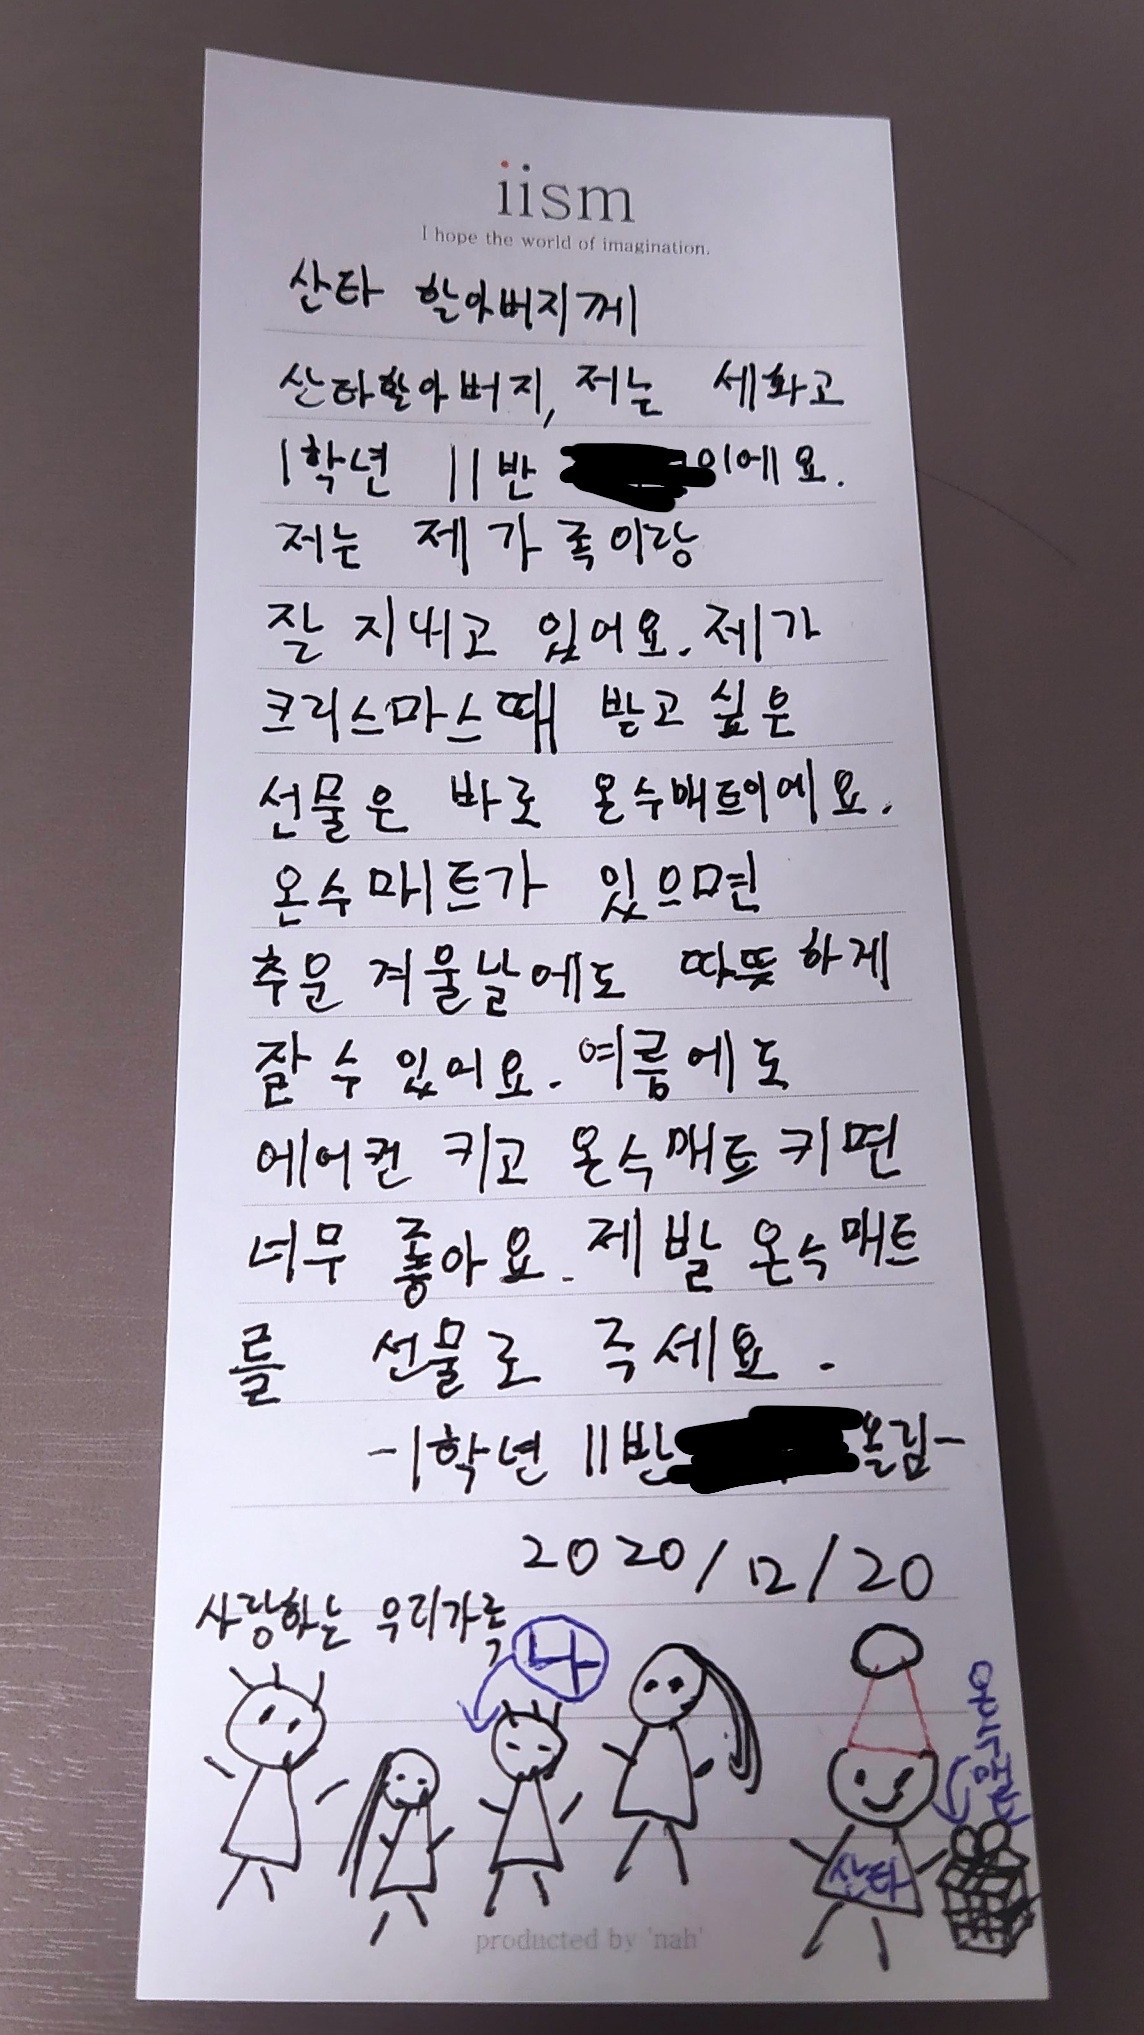 iism
I hope the world of imagination.
산타 할아버지께
산타할아버지, 저는 세화고
1학년 11반 이에요.
저는 제 가족이랑
잘 지내고 있어요. 제가
크리스마스때 받고 싶은
선물은 바로 온수매트이에요.
온수매트가 있으면
추운 겨울날에도 따뜻하게
잘 수 있어요. 여름에도
에어컨 키고 온수매트 키면
너무 좋아요. 제발 온수매트
를 선물로 주세요.
-1학년 11반 올림-
2020/12/20
사랑하는 우리가족
나
온수매트
산타
producted by 'nah'